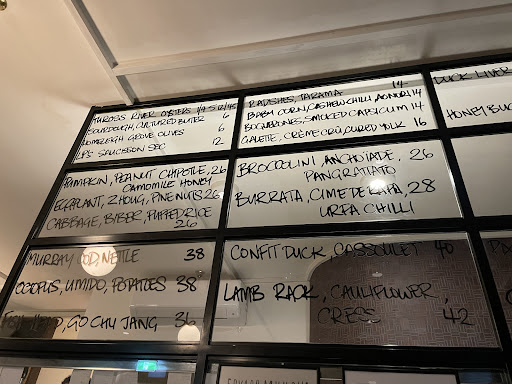 RIVER OYSTERS
SOURDOUGH, CULTURED BUTTER 6
GROVE OLIVES 6
LP'S SAUCISSON SEC 12
RADISHES, TARAMA 14
BABY CORN, CASHEW CHILLI, 14
SMOKED CAPSICUM 14
GALETTE, CRÈME CRÙ, CURED YOLK 16
DUCK LIVER
HONEY BUG
PUMPKIN, PEANUT CHIPOTLE, 26
CAMOMILE HONEY
EGGPLANT, ZHOUG, PINENUTS 26
CABBAGE, PUFFED RICE
26
BROCCOLINI, ANCHOIADE, 26
PANGRATTATO
BURRATA, CIME DE RAPA, 28
URFA CHILLI
MURRAY COD, NETTLE 38
OCTOPUS, UMIDO, POTATOES 38
FISH HEAD, GO CHU JANG 36
CONFIT DUCK, CASSOULET 40
LAMB RACK, CAULIFLOWER,
CRESS 42